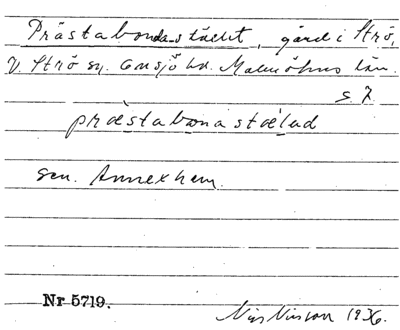 Prästabonda-stället, gård i Strö,
V. Strö sn. Onsjö hd. Malmöhus län.
s. 7
præstabonastælad
sen. Annexhem.
Nr 5719.
Nils Nilsson 1936.